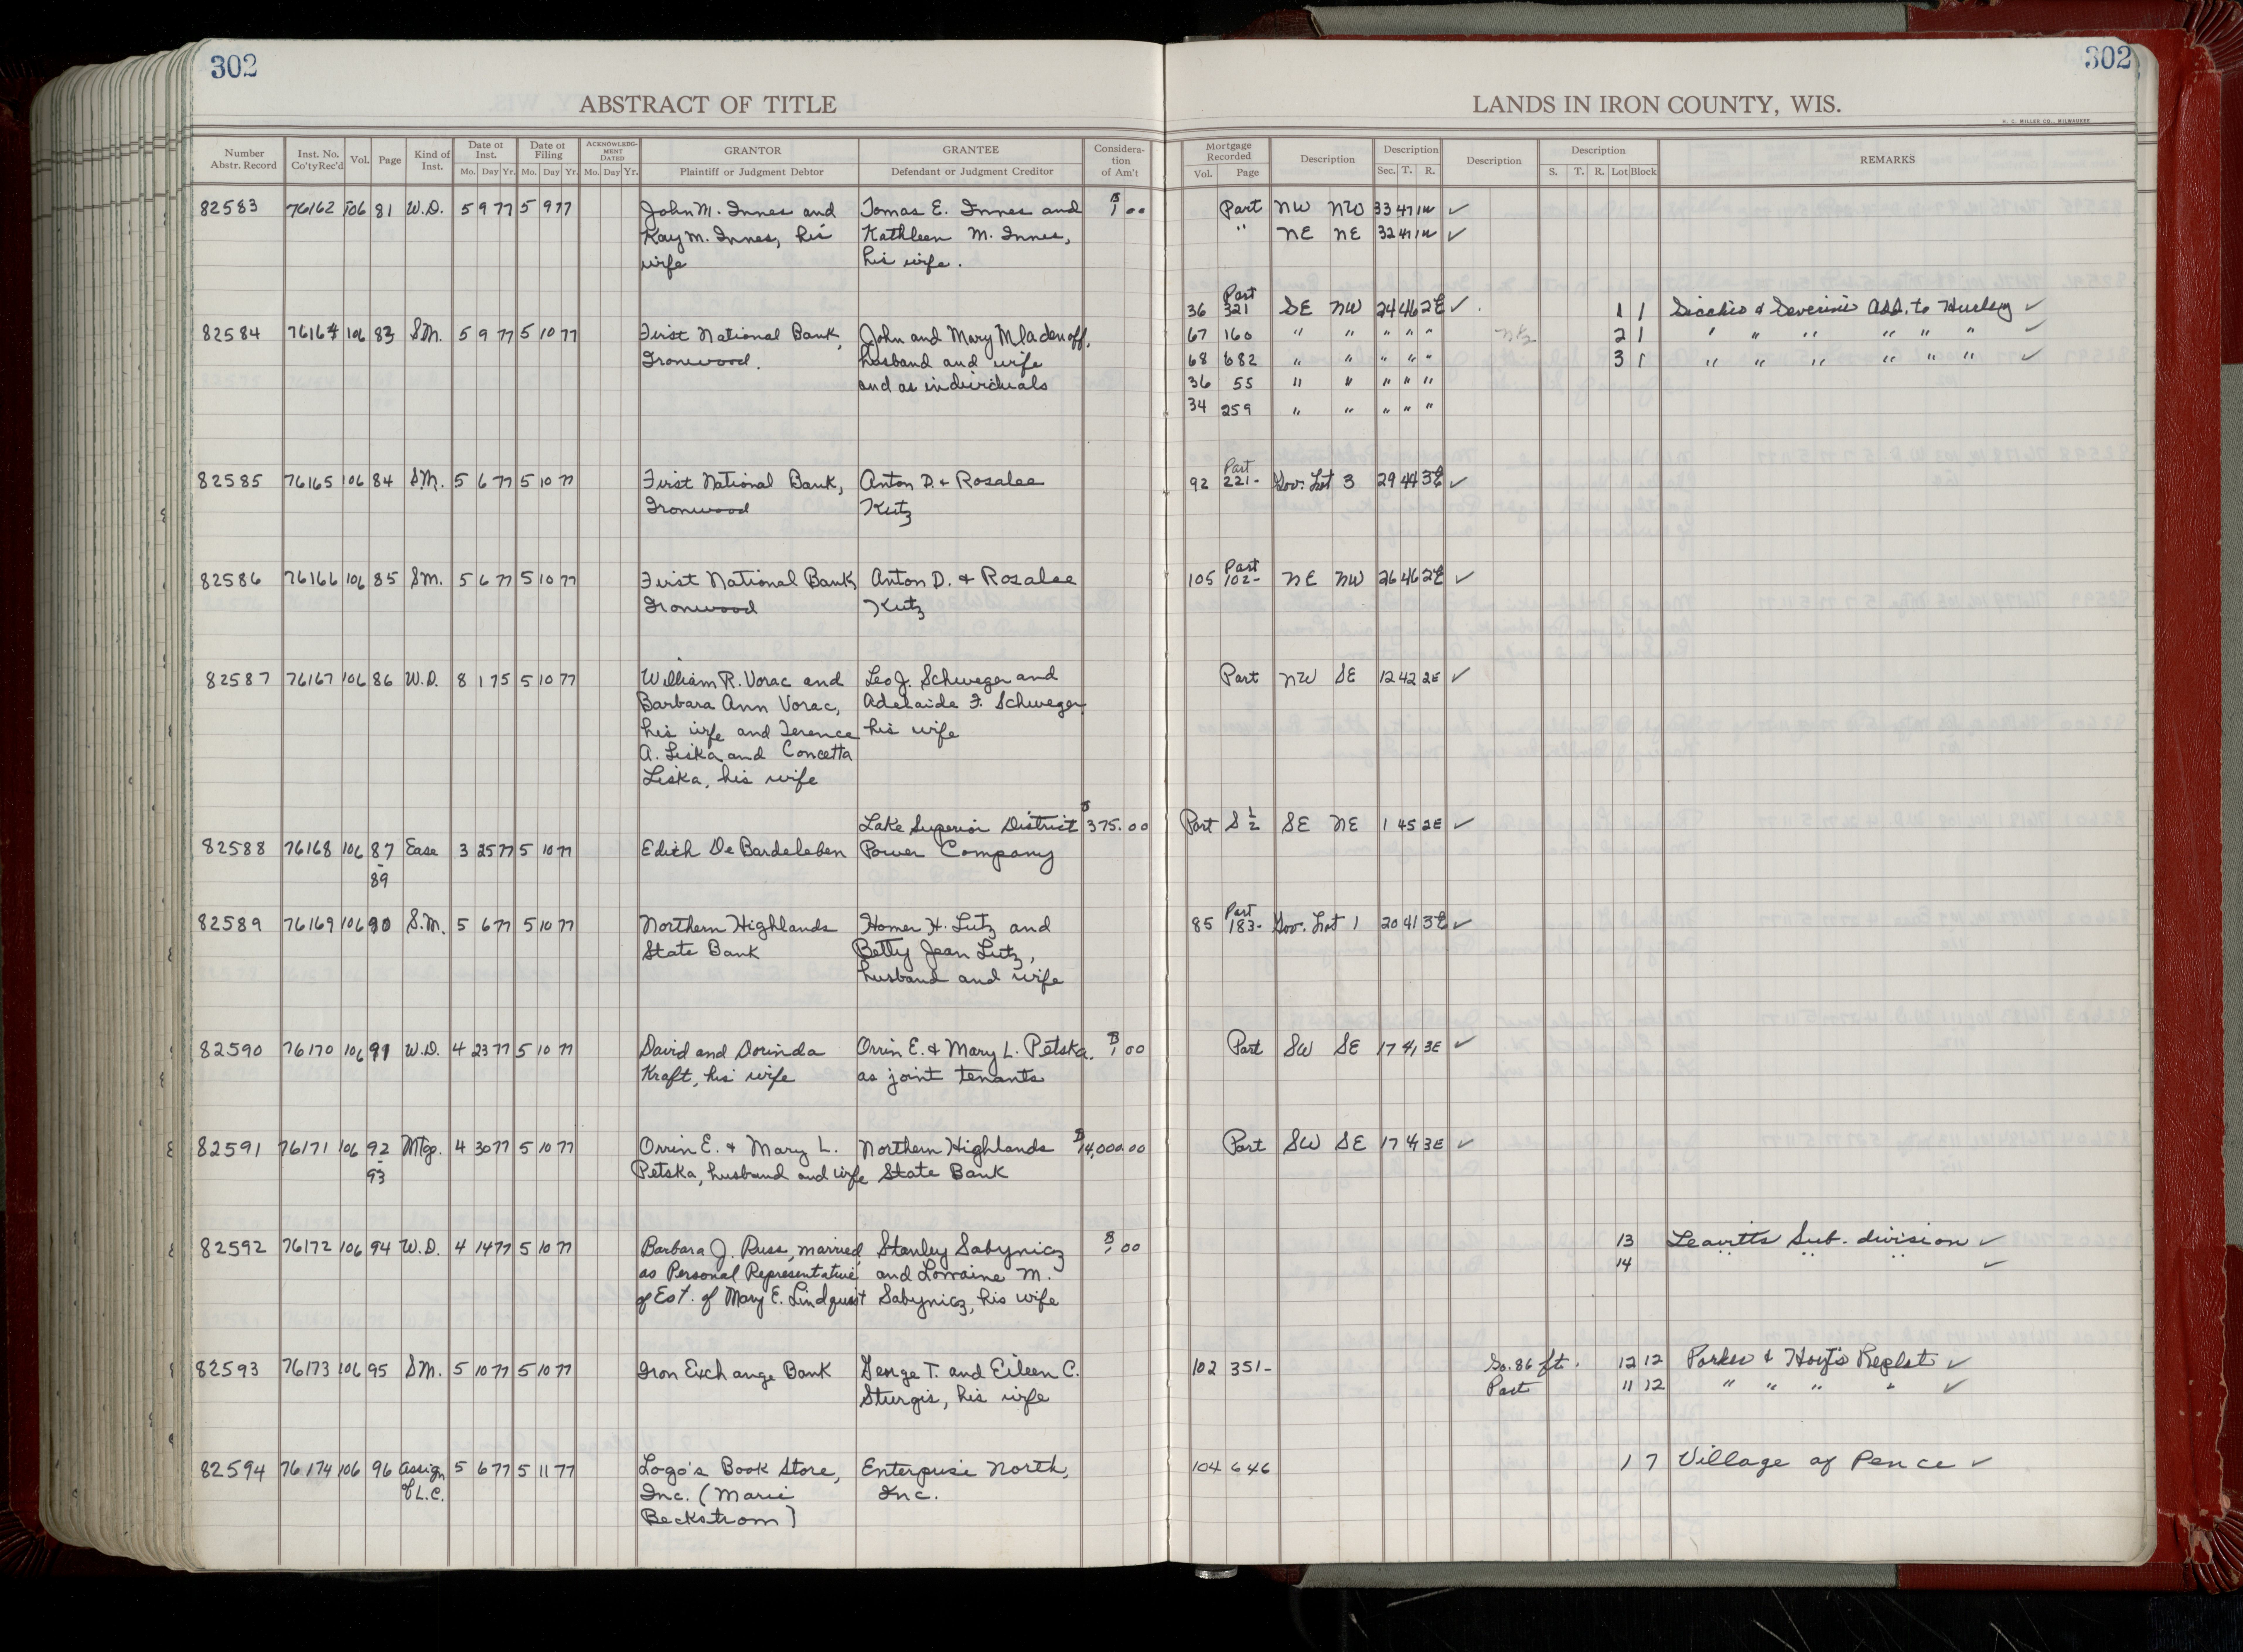 302
302
ABSTRACT OF TITLE
LANDS IN IRON COUNTY, WIS.
H. C. MILLER CO., MILWAUKEE
Number Abstr. Record Inst. No. Co'tyRec'd Vol. Page Kind of Inst. Date of Inst. Mo. Day Yr. Date of Filing Mo. Day Yr. ACKNOWLEDGMENT DATED Mo. Day Yr. GRANTOR Plaintiff or Judgment Debtor GRANTEE Defendant or Judgment Creditor Consideration of Am't Mortgage Recorded Vol. Page Description Description Sec. T. R. Description Description S. T. R. Lot Block REMARKS
82583 76162 106 81 W.D. 5 9 77 5 9 77 John M. Innes and Tomas E. Innes and $1 00 Part NW NW 33 47 1W ✓
Kay M. Innes, his Kathleen M. Innes, " NE NE 32 47 1W ✓
wife his wife.
Part
36 321 SE NW 24 46 2E ✓ 1 1 Add. to Hurley ✓
82584 76164 106 83 SM. 5 9 77 5 10 77 First National Bank, John and Mary Mladenoff, 67 160 " " " " " 2 1 " " " " " " ✓
Ironwood. husband and wife 68 682 " " " " " 3 1 " " " " " " ✓
and as individuals 36 55 " " " " "
34 259 " " " " "
Part
82585 76165 106 84 S.M. 5 6 77 5 10 77 First National Bank, Anton D. + Rosalee 92 221- Gov. Lot 3 29 44 3E ✓
Ironwood Kutz
Part
82586 76166 106 85 SM. 5 6 77 5 10 77 First National Bank Anton D. + Rosalee 105 102- NE NW 26 46 2E ✓
Ironwood Kutz
82587 76167 106 86 W.D. 8 1 75 5 10 77 William R. Vorac and Leo J. Schweger and Part NW SE 12 42 2E ✓
Barbara Ann Vorac, Adelaide F. Schweger
his wife and Terence his wife
A. Liska and Concetta
Liska, his wife
Lake Superior District $375.00 Part S ½ SE NE 1 45 2E ✓
82588 76168 106 87 Ease 3 25 77 5 10 77 Edith De Bardeleben Power Company
-
89
Part
82589 76169 106 90 S.M. 5 6 77 5 10 77 Northern Highlands Homer H. Lutz and 85 183- Gov. Lot 1 20 41 3E ✓
State Bank Betty Jean Lutz,
husband and wife
82590 76170 106 91 W.D. 4 23 77 5 10 77 David and Dorinda Orrin E. + Mary L. Petska. $1 00 Part SW SE 17 41 3E ✓
Kraft, his wife as joint tenants
82591 76171 106 92 Mtg. 4 30 77 5 10 77 Orrin E. + Mary L. Northern Highlands $14,000.00 Part SW SE 17 41 3E ✓
-
93 Petska, husband and wife State Bank
82592 76172 106 94 W.D. 4 14 77 5 10 77 Barbara J. Russ, married, Stanley Sabynicz $1 00 13 Leavitts Sub. division ✓
as Personal Representative and Lorraine M. 14 " " " ✓
of Est. of Mary E. Lindquist Sabynicz, his wife
82593 76173 106 95 SM. 5 10 77 5 10 77 Iron Exchange Bank George T. and Eileen C. 102 351- So. 86 ft. 12 12 Parker & Hoyt's Replat ✓
Sturgis, his wife Part 11 12 " " " " ✓
82594 76174 106 96 Assign 5 6 77 5 11 77 Logo's Book Store, Enterprise North, 104 646 1 7 Village of Pence ✓
of L.C. Inc. (Marie Inc.
Beckstrom)